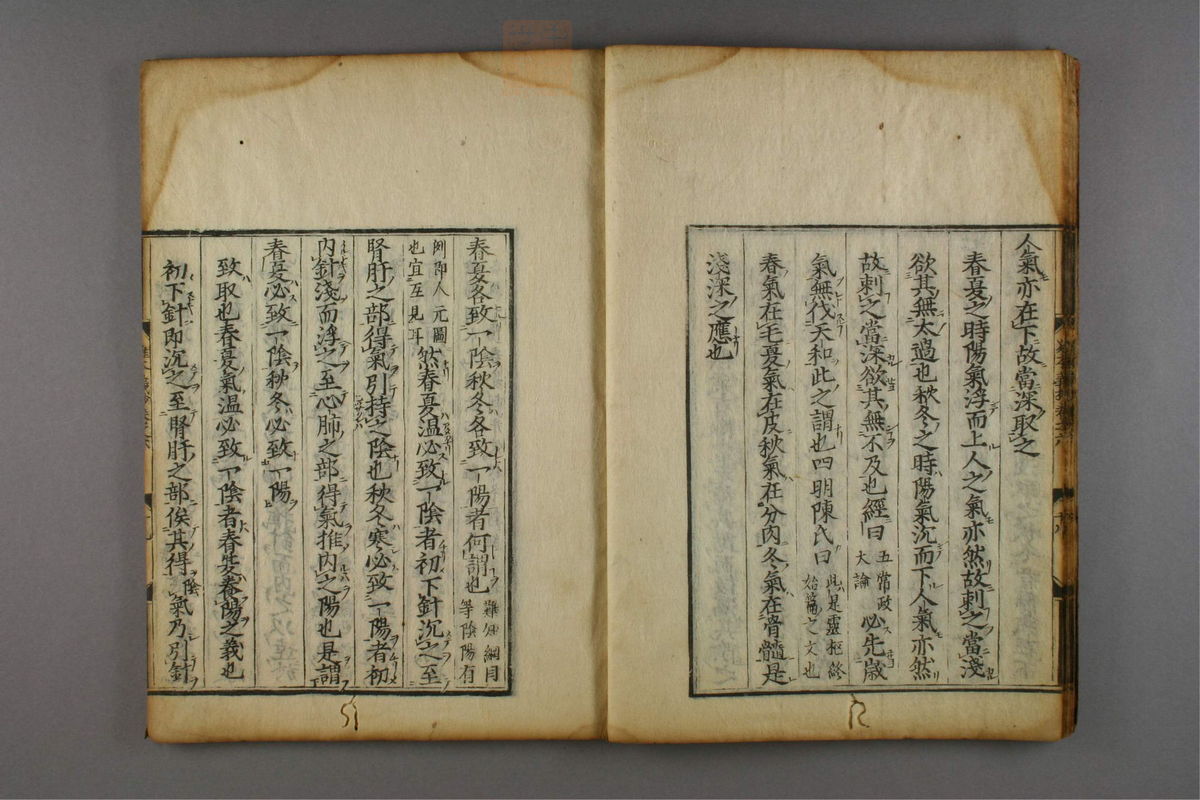 人氣亦在下故當深取之
春夏之時陽氣浮而上人之氣亦然故刺之當淺
欲其無太過也秋冬之時陽氣沉而下人氣亦然
故刺之當深欲其無不及也經曰五常政大論必先歲
氣無伐天和此之謂也四明陳氏曰此是靈枢終始篇之文也
春氣在毛夏氣在皮秋氣在分肉冬氣在骨髓是
淺深之應也
春夏各致一陰秋冬各致一陽者何謂也難知綱目等陰陽有
例即人元圖也宜互見耳然春夏温必致一陰者初下針沉之至
腎肝之部得氣引持之陰也秋冬寒必致一陽者初
内針淺而浮之至心肺之部得氣推内之陽也是謂
春夏必致一陰秋冬必致一陽
致取也春夏氣温必致一陰者春夏養陽之義也
初下針即沉之至腎肝之部俟其得陰氣乃引針